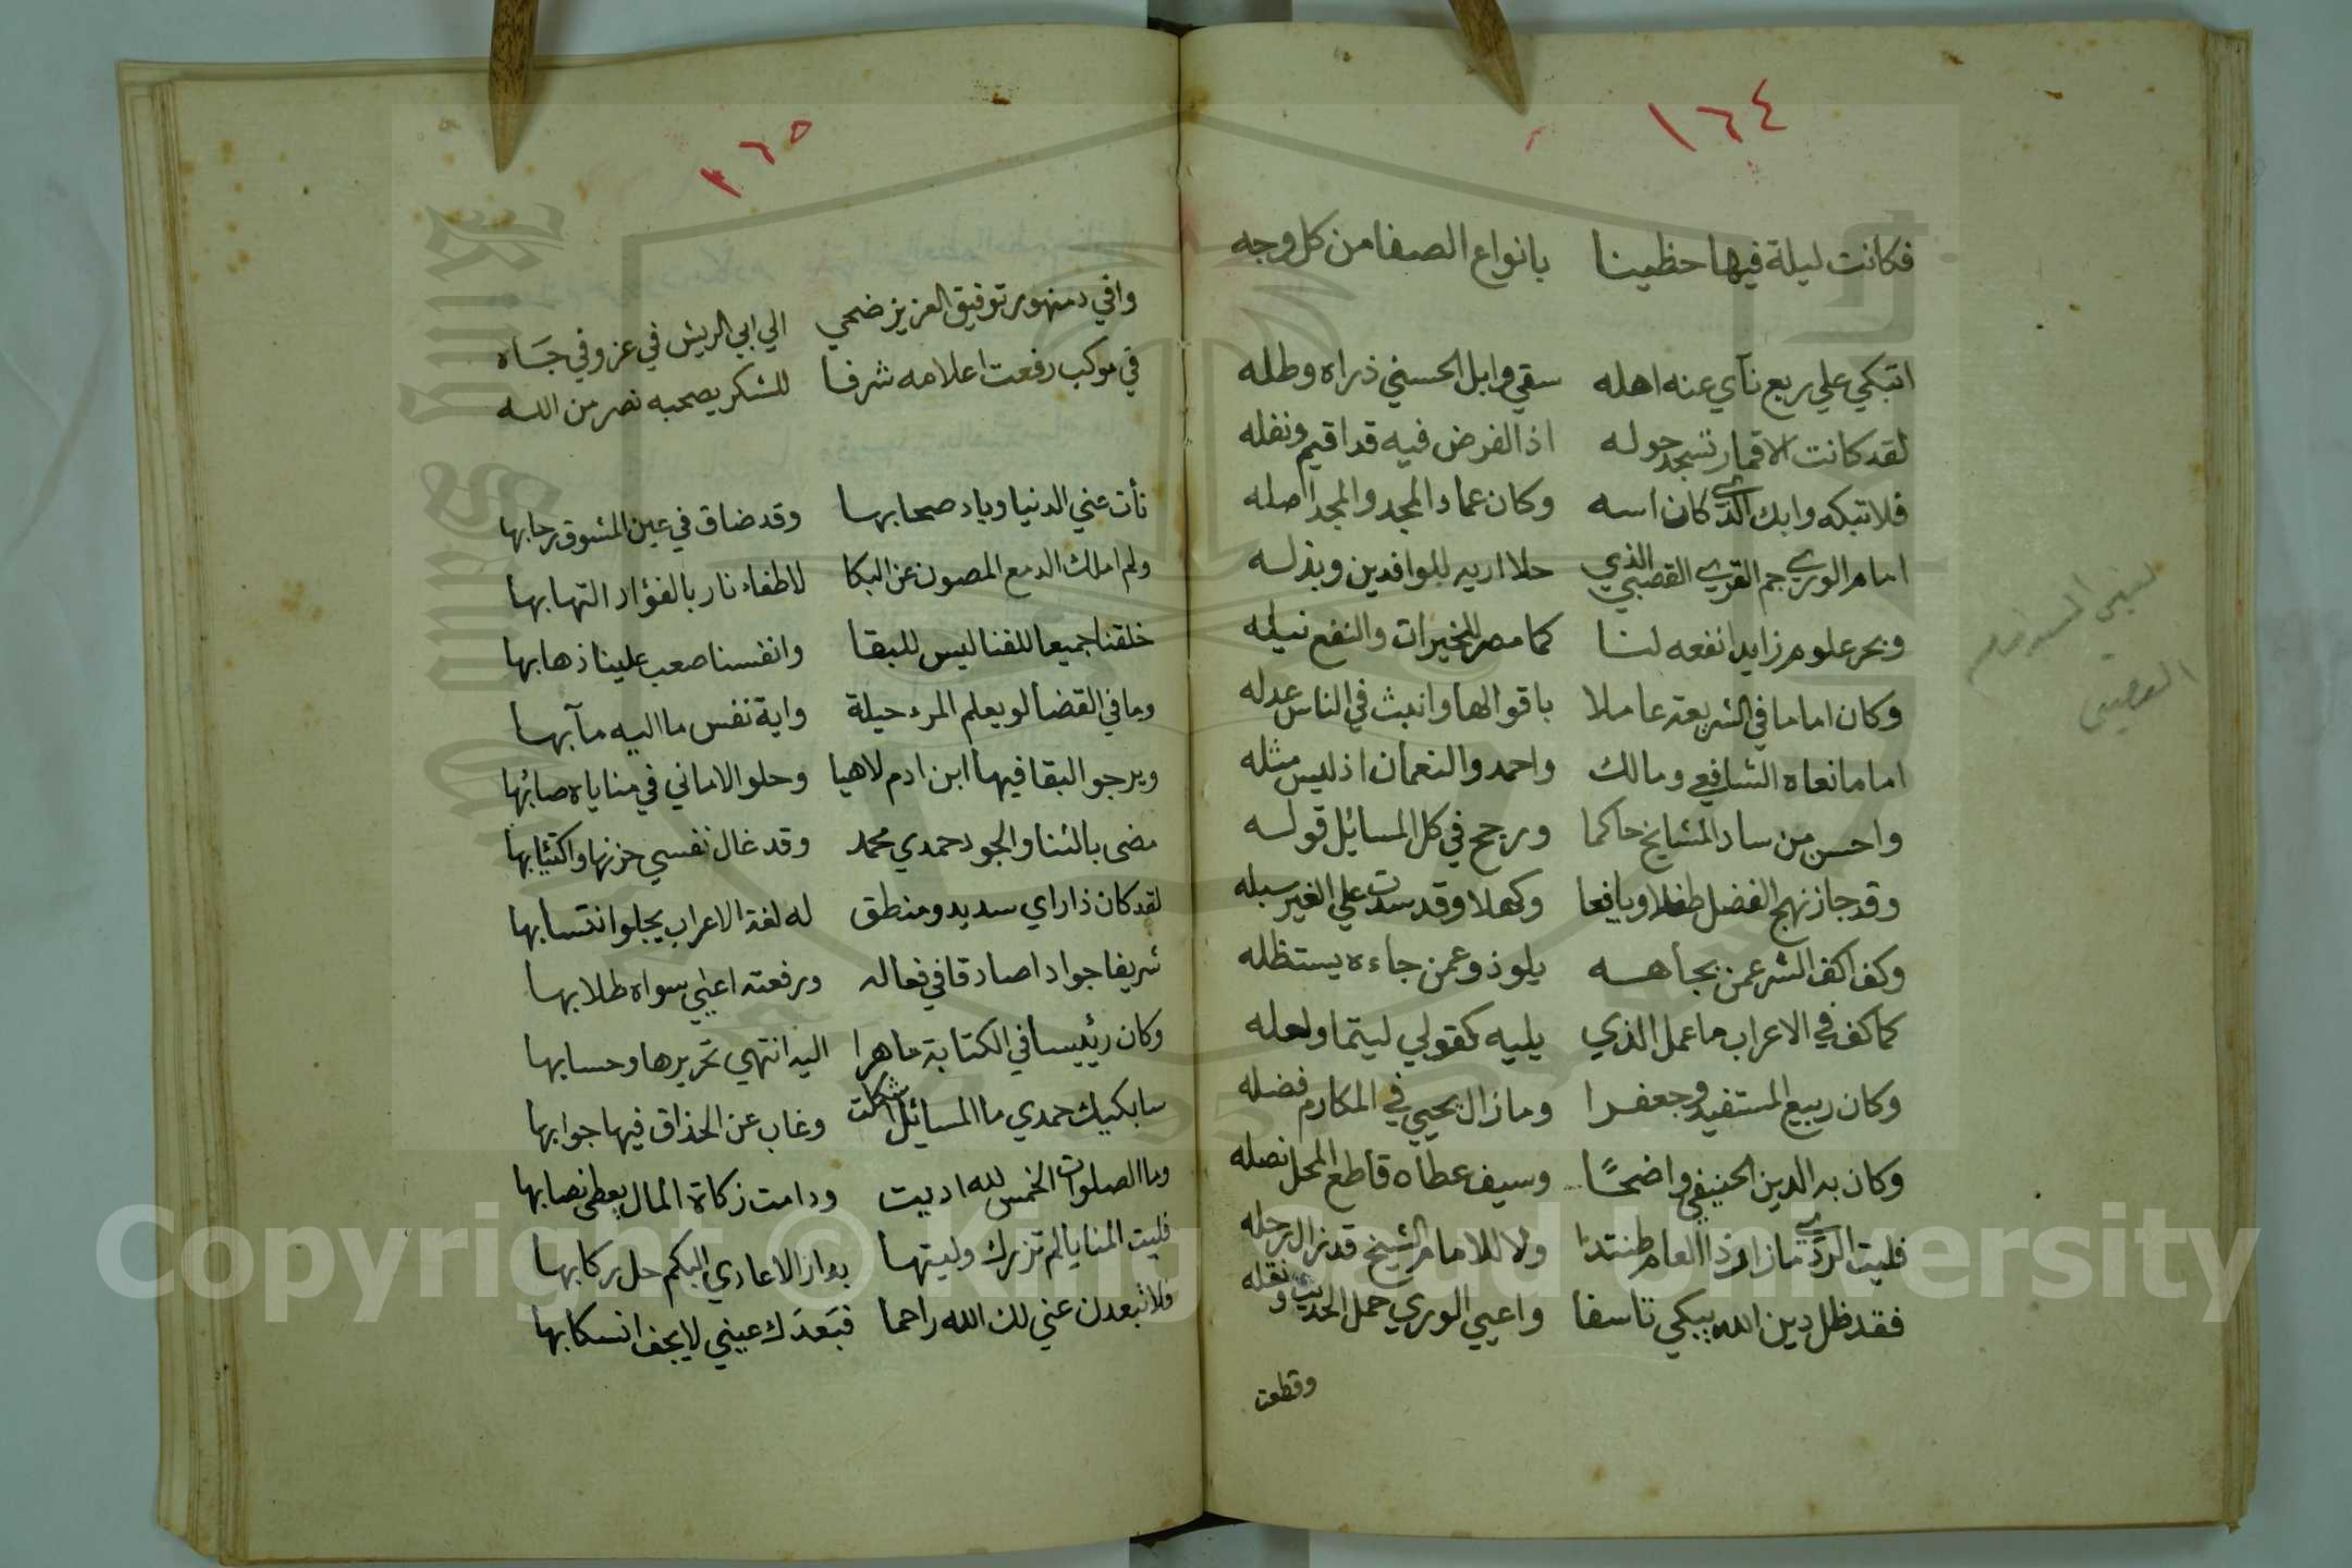 ١٦٤
فكانت ليلة فيها حظينا بانواع الصفا من كل وجه
اتبكي علي ربع نآي عنه اهله سقي وابل الحسني ذراه وطله
لقد كانت الاقمار تسجد حوله اذا الفرض فيه قد اقيم ونفله
فلا تبكه وابك الذي كان اسه وكان عماد المجد والمجد اصله
امام الوري جم القري القصبي الذي حلا اريه للوافدين وبذله
وبحر علوم زايد نفعه لنا كما مصر للخيرات والنفع نيله
وكان اماما في الشريعة عاملا باقوالها وانبث في الناس عدله
امام نعاه الشافعي ومالك واحمد والنعمان اذ ليس مثله
واحسن من ساد المشايخ حاكما ورجح في كل المسائل قوله
وقد جاز نهج الفضل طفلا ويافعا وكهلا وقد سدت علي الغير سبله
وكف اكف الشر عمن بجاهه يلوذ وعمن جاءه يستظله
كما كف في الاعراب ما عمل الذي يليه كقولي ليتما ولعله
وكان ربيع المستفيد وجعفرا وما زال يحيي في المكارم فضله
وكان به الدين الحنيفي واضحًا وسيف عطاه قاطع المحل نصله
فليت الردي ما زار ذا العام طنتدا ولا للامام الشيخ قد زال رحله
فقد ظل دين الله يبكي تاسفا واعيي الوري حمل الحديث ونقله
وقطعت
القصبي
١٦٥
وافي دمنهور توفيق العزيز ضحي الي ابي الريش في عز وفي جَاه
في موكب رفعت اعلامه شرفا للشكر يصحبه نصر من الله
نأت عني الدنيا وباد صحابها وقد ضاق في عين المشوق رحابها
ولم املك الدمع المصون عن البكا لاطفاء نار بالفؤاد التهابها
خلقنا جميعا للفنا ليس للبقا وانفسنا صعب علينا ذهابها
وما في القضا لو يعلم المرء حيلة واية نفس ما اليه مآبها
ويرجو البقا فيها ابن ادم لاهيا وحلو الاماني في مناياه صائبها
مضي بالثنا والجود حمدي محمد وقد غال نفسي حزنها واكتئابها
لقد كان ذا راي سديد ومنطق له لغة الاعراب يجلو انتسابها
شريفا جوادا صادقا في فعاله ورفعته اعيي سواه طلابها
وكان رئيسا في الكتابة ماهرا اليه انتهي تحريرها وحسابها
سابكيك حمدي ما المسائل اشكلت وغاب عن الحذاق فيها جوابها
وما الصلوات الخمس لله اديت ودامت زكاة المال يعطي نصابها
فليت المنايا لم تزرك وليتها بدار الاعادي اليكم حل ركابها
فلا تبعدن عني لك الله راحما فبَعدَك عيني لا يجف انسكابها
Copyright © King Saud University